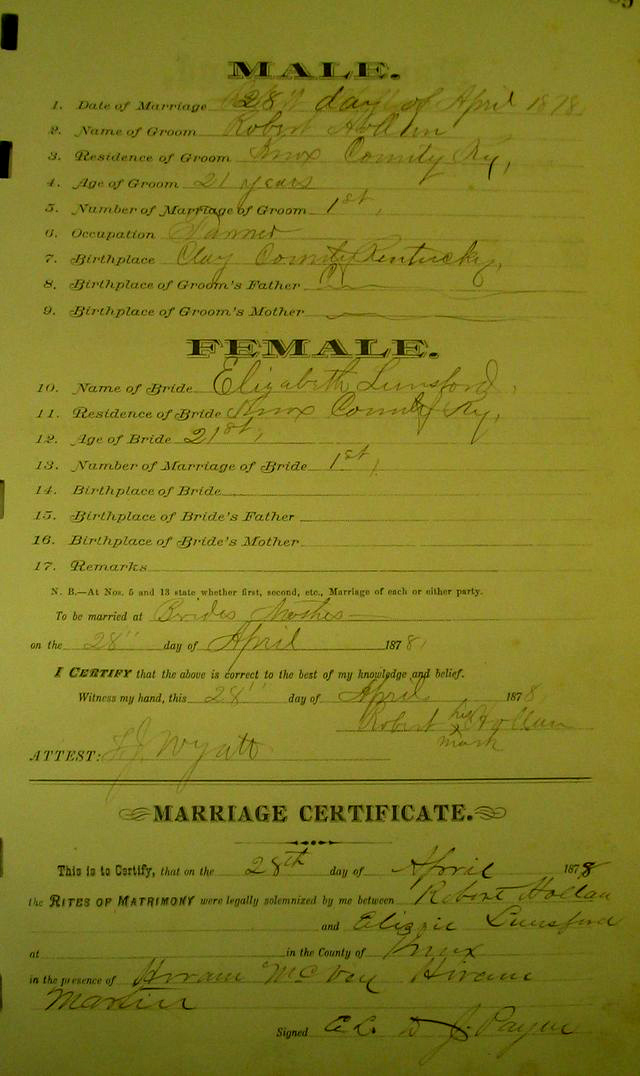 MALE.
1. Date of Marriage 28" day of April 1878,
2. Name of Groom Robert Hollan
3. Residence of Groom Knox County Ky,
4. Age of Groom 21 years
5. Number of Marriage of Groom 1st,
6. Occupation Farmer
7. Birthplace Clay County Kentucky,
8. Birthplace of Groom's Father
9. Birthplace of Groom's Mother
FEMALE.
10. Name of Bride Elizabeth Lunsford,
11. Residence of Bride Knox County Ky,
12. Age of Bride 21st,
13. Number of Marriage of Bride 1st,
14. Birthplace of Bride
15. Birthplace of Bride's Father
16. Birthplace of Bride's Mother
17. Remarks
N. B.—At Nos. 5 and 13 state whether first, second, etc., Marriage of each or either party.
To be married at Brides Mothes
on the 28" day of April 1878,
I CERTIFY that the above is correct to the best of my knowledge and belief.
Witness my hand, this 28" day of April 1878
Robert his Hollan
mark
ATTEST: Wyatt
MARRIAGE CERTIFICATE.
This is to Certify, that on the 28th day of April 1878
the RITES OF MATRIMONY were legally solemnized by me between Robert Hollan
and Lunsford
at in the County of Knox
in the presence of Hiram McVey Hiram
Martin
Signed J. Payne